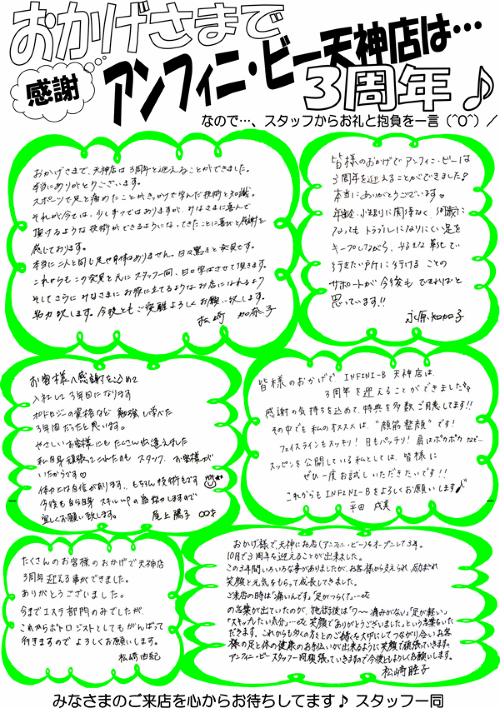 おかげさまで
感謝
アンフィニ・ビー天神店は…
3周年♪
なので…、スタッフからお礼と抱負を一言 (^O^) /
おかげさまで、天神店は3周年を迎えることができました。
本当にありがとうございます。
スポーツで足を痛めたことがきっかけで学んだ技術と知識。
それが今では、少しずつではありますが、みなさまに喜んで
頂けるような技術ができるようになってきたことに喜びと感謝を
感じております。
本当に二人と同じ足や身体はありません。日々驚きと発見です。
これからもこの発見を元にスタッフ一同、日々学ばせて頂きます。
そしてさらにみなさまにお役に立てるようなお店になれるよう
努力致します。今後ともご愛顧よろしくお願い致します。
松崎 加奈子
皆様のおかげでアンフィニ・ビーは
3周年を迎えることができました!
本当にありがとうございます。
年齢、小さな
トラブルしらずな足を
キープして
行きたい所に行ける ことの
サポートが今後も できればと
思っています!!
お客様へ感謝をこめて
入社して3年目になります
ポドロジーの資格など 勉強も学べた
3年間だったと思います。
やさしいお客様にも たくさん出逢えました
私自身頑張ってこれたのも スタッフ、お客様が
いたからです
今後も自分自身 スキルupの為努めますので
宜しくお願い致します。 尾上 陽子
皆様のおかげで INFINI-B 天神店は
3周年を迎えることができました
感謝の気持ちを込めて、特典を多数ご用意してます!!
その中でも 私のオススメは、“顔筋整顔”です!
フェイスラインもスッキリ! 目もパッチリ! 肩はポカポカ など…
スッピンを公開している私としては、皆様に
ぜひ一度お試しいただきたいです!!
これからも INFINI-Bをよろしくお願いします♪
平田 成美
たくさんのお客様のおかげで天神店
3周年迎える事ができました。
ありがとうございました。
今までエステ部門のみでしたが、
これからポドロジストとしてもがんばって
行きますので よろしくお願いします。
松崎 由紀
おかげ様で、天神にお店(アンフィニ・ビー)をオープンして3年。
10月で3周年を迎えることが出来ました。
この3年間いろいろな事がありましたが、お客様から支えられ、励まされ
笑顔と元気をもらって成長してきました。
ご来店の時は「痛いんです。」「足がつらくて。」…と
の言葉が出ていたのが、施術後は「ワ〜 痛みがない。」「足が軽い」
“スキップしたい気分。”…と笑顔で“ありがとうございました。”という言葉をいた
だきます。これからも多くの方々とのご縁を大切にしてつながり合い、お客
様の足と体の健康のお手伝いが出来るように笑顔で頑張っていきます。
アンフィニ・ビースタッフ一同頑張っていきますので今後ともよろしくお願いします。
松崎睦子
みなさまのご来店を心からお待ちしてます♪ スタッフ一同